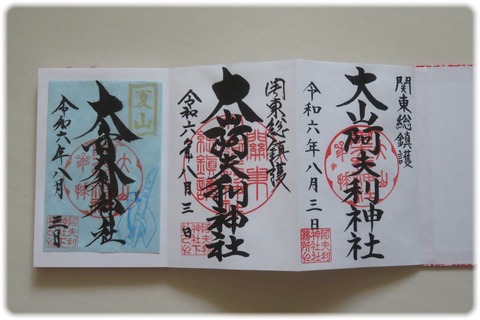 関東総鎮護
大山阿夫利神社
令和六年八月三日
関東総鎮護
大山阿夫利神社
令和六年八月三日
夏山
大山阿夫利神社
令和六年八月
三日